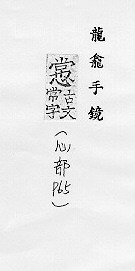 龍龕手鏡
古文
常字
(心部P65)